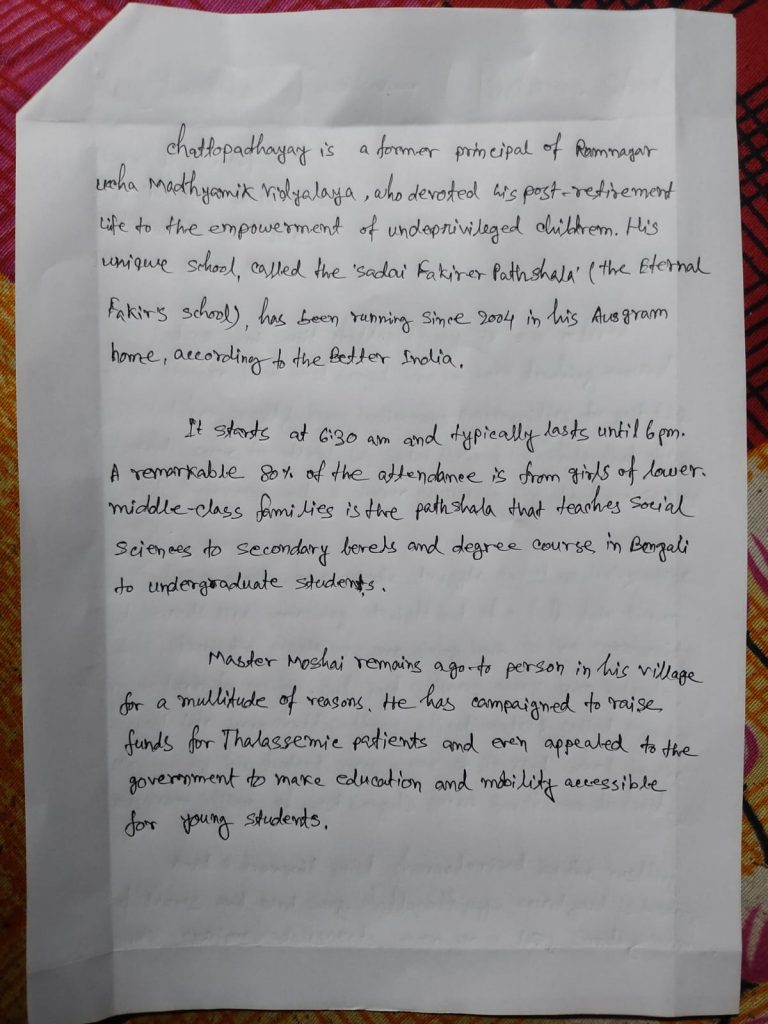 Chattopadhayay is a former principal of Ramnagar
uccha Madhyamik Vidyalaya, who devoted his post-retirement
life to the empowerment of undeprivileged children. His
unique school, called the 'Sadai Fakirer Pathshala' (the Eternal
Fakir's school), has been running since 2004 in his Ausgram
home, according to the Better India.
It starts at 6:30 am and typically lasts until 6 pm.
A remarkable 80% of the attendance is from girls of lower-
middle-class families is the pathshala that teaches Social
Sciences to secondary levels and degree course in Bengali
to undergraduate students.
Master Moshai remains a go-to person in his village
for a mullitude of reasons. He has campaigned to raise
funds for Thalassemic patients and even appealed to the
government to make education and mobility accessible
for young students.